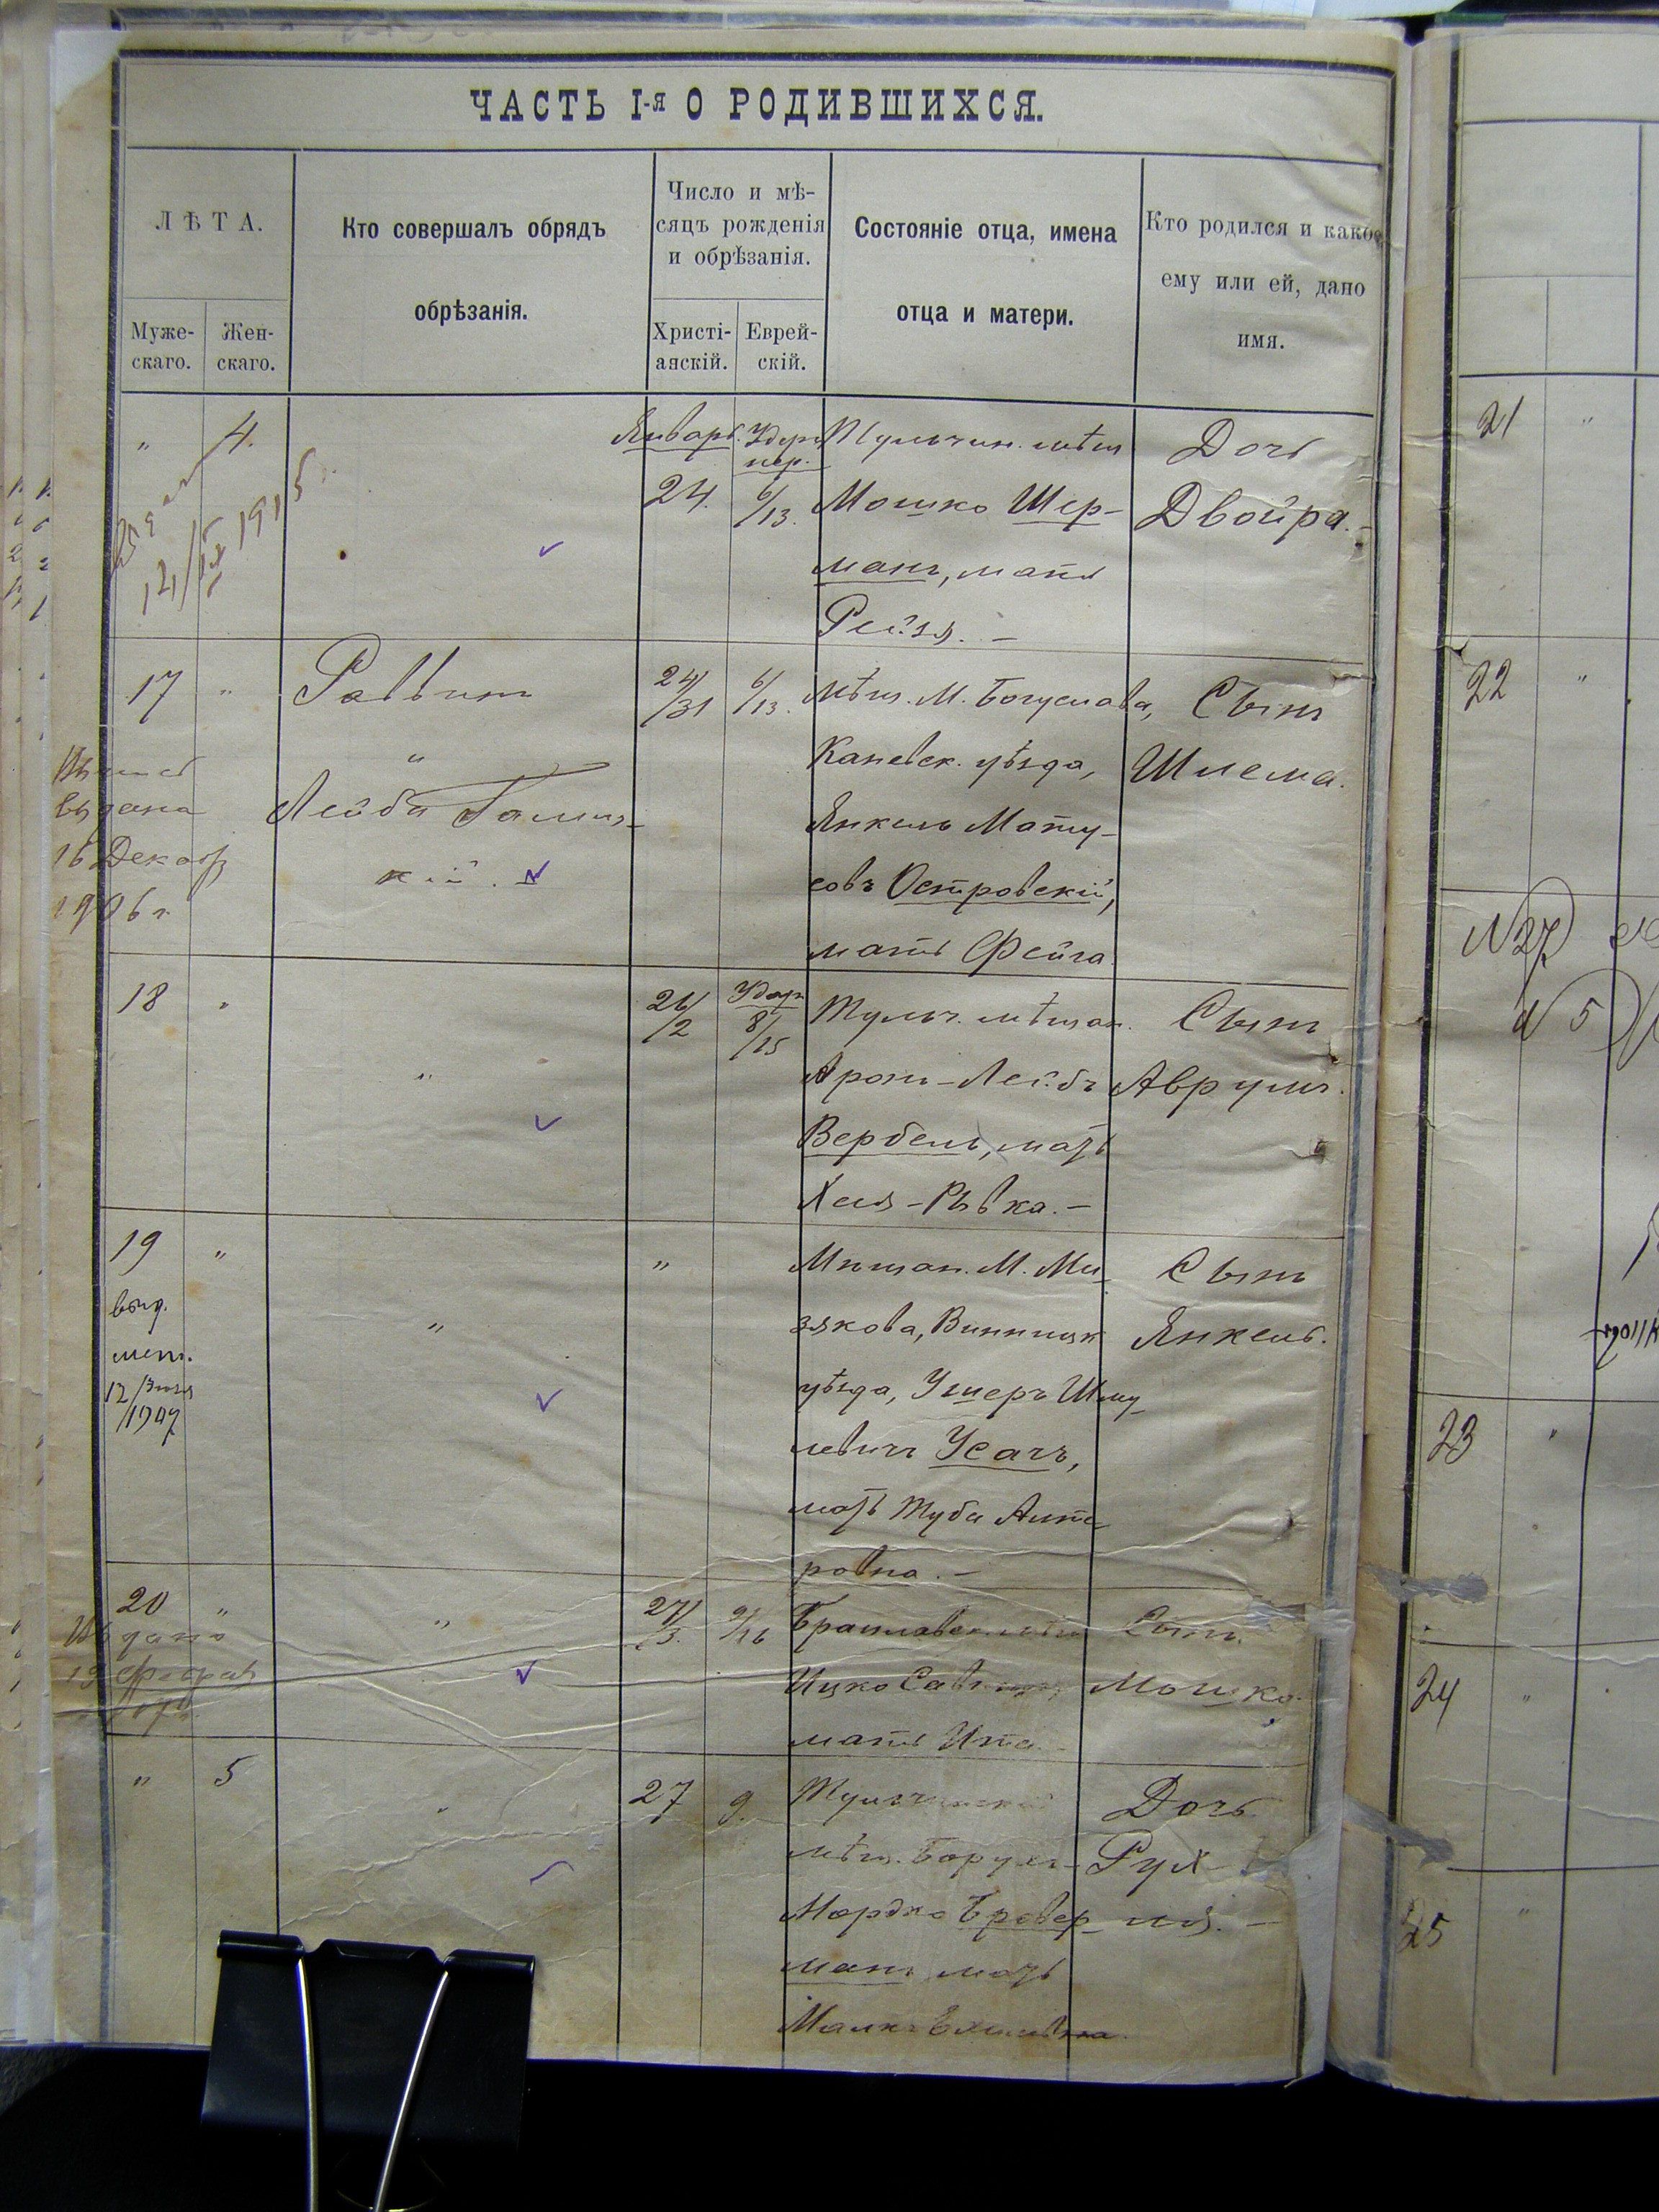 ЧАСТЬ I-я О РОДИВШИХСЯ.
ЛѢТА.
Муже-
скаго.
Жен-
скаго.
Кто совершалъ обрядъ
обрѣзанія.
Число и мѣ-
сяцъ рожденія
и обрѣзанія.
Христі-
анскій.
Еврей-
скій.
Состояніе отца, имена
отца и матери.
Кто родился и какое
ему или ей, дано
имя.
" 4.
1915
Январь.
24.
6/13.
Тульчин. мѣщ
Мошко Шер-
манъ, мать
Рейзя. –
Дочь
Двойра. –
17 "
выдана
16 Декаб
1906 г.
Раввинъ
"
Лейба
кій.
24/31
6/13.
Мѣщ. М. Богуслава,
Каневск. уѣзда,
Янкель Моту-
совъ Островскій,
мать Фейга
Сынъ
Шлема.
18 "
"
26/2
8/15
Тульч. мѣщан.
Аронъ-Лейбъ
Вербель, мать
Хая-Рывка. –
Сынъ
Аврумъ.
19 "
выд.
метр.
12/1907
"
"
Мѣщан. М. Ми-
зякова, Винницк
уѣзда, Ушеръ Шму-
левичъ Усачъ,
мать Туба Альте-
ровна. –
Сынъ
Янкель.
20 "
"
27/3.
9/16
Брацлавск. мѣщ
Ицко
мать Ита
Сынъ
Мошко
" 5
"
27
9.
Тульчинскій
мѣщ. Борухъ-
Мордко Бровер-
манъ, мать
Дочь
Рух-
ля. –
21 "
22 "
N 27
N 5
23 "
24 "
25 "